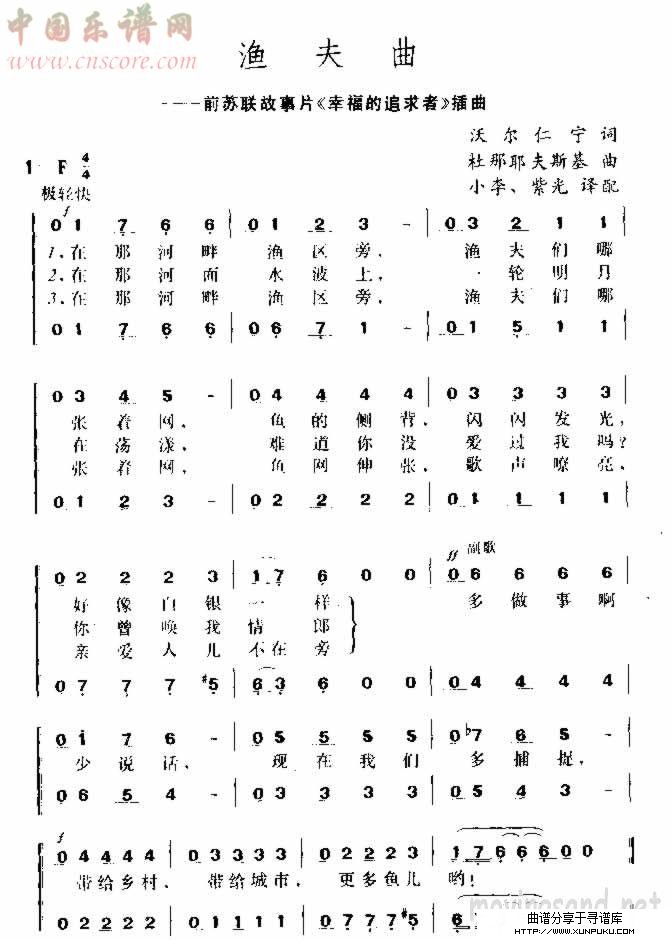 中国乐谱网
www.cnscore.com
渔夫曲
——前苏联故事片《幸福的追求者》插曲
沃尔仁宁 词
杜那耶夫斯基 曲
小李、紫光 译配
1 F 4/4
极轻快
f
0 1 7 6 6 | 0 1 2 3 - | 0 3 2 1 1
1.在那河畔 渔区旁, 渔夫们哪
2.在那河面 水波上, 一轮明月
3.在那河畔 渔区旁, 渔夫们哪
0 1 7 6 6 | 0 6 7 1 - | 0 1 5 1 1
0 3 4 5 - | 0 4 4 4 4 | 0 3 3 3 3
张着网, 鱼的侧背, 闪闪发光,
在荡漾, 难道你没 爱过我吗?
张着网, 鱼网伸张, 歌声嘹亮,
0 1 2 3 - | 0 2 2 2 2 | 0 1 1 1 1
ff 副歌
0 2 2 2 3 | 1 7 6 0 0 | 0 6 6 6 6
好像白银一样 多做事啊
你曾唤我情郎
亲爱人儿不在旁
0 7 7 7 #5 | 6 3 6 0 0 | 0 4 4 4 4
0 i 7 6 - | 0 5 5 5 5 | 0 b7 6 5 -
少说话, 现在我们 多捕捉,
0 6 5 4 - | 0 3 3 3 3 | 0 5 4 3 -
f
0 4 4 4 4 | 0 3 3 3 3 | 0 2 2 2 3 | 1 7 6 6 6 0 0
带给乡村, 带给城市, 更多鱼儿 哟!
0 2 2 2 2 | 0 1 1 1 1 | 0 7 7 7 #5 | 6
movingsand.net
曲谱分享于寻谱库
HTTP://WWW.XUNPUKU.COM